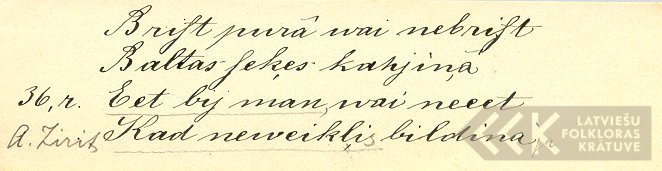 Brist purâ wai nebrist
Baltas seķes kahjiņâ
36, r. Eet bij man, wai neeet
A. Zirits Kad neweikļis bildinaja
LATVIEŠU
FOLKLORAS
KRĀTUVE